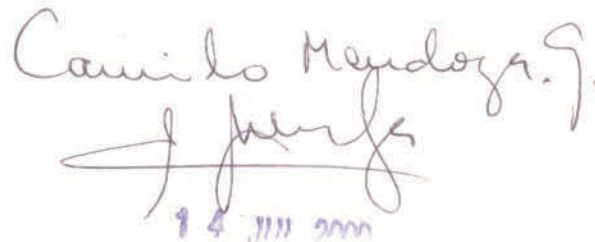 Camilo Mendoza. G.
14 JUL 2000